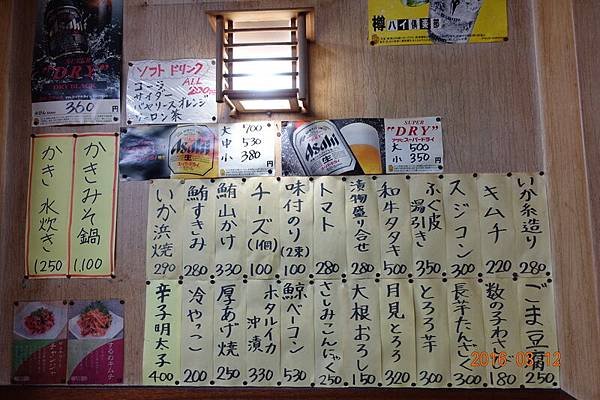 SUPER
"DRY"
DRY BLACK
350 円
樽ハイ倶楽部
ソフトドリンク
コーラ
サイダー
バヤリースオレンジ
ウーロン茶
ALL
200円
Asahi
生
大 700
中 530
小 380
Asahi
生
SUPER
"DRY"
アサヒスーパードライ
大 500
小 350
かきみそ鍋
1,100
かき 水炊き
1250
いか糸造り
280
キムチ
220
スジコン
300
ふぐ皮湯引き
350
和牛タタキ
500
漬物盛り合せ
280
トマト
280
味付のり(2束)
100
チーズ(1個)
100
鮪山かけ
330
鮪すきみ
280
いか浜焼
290
ごま豆腐
250
数の子わさび
180
長芋たんざく
300
とろろ芋
300
月見とろろ
320
大根おろし
150
さしみこんにゃく
250
鯨ベーコン
530
ホタルイカ沖漬
330
厚あげ焼
250
冷やっこ
200
辛子明太子
400
チャンジャ
するめキムチ
2016 03 12